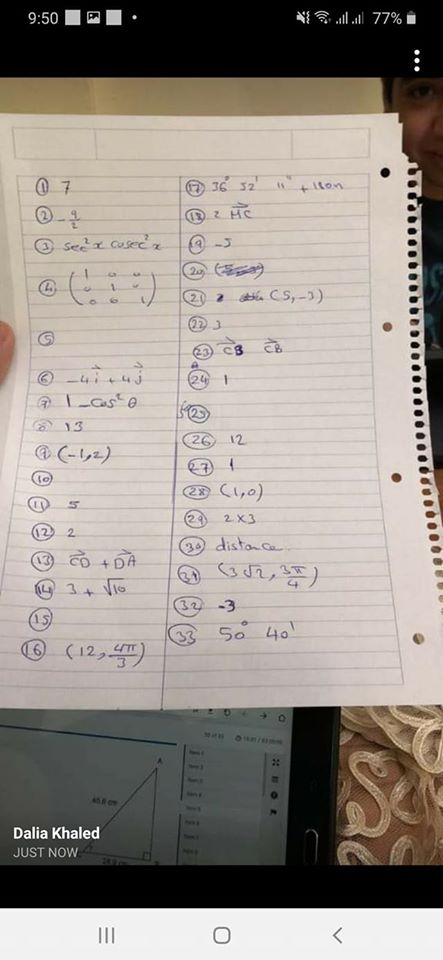 9:50
77%
① 7
② -9/2
③ sec²x cosec²x
④ (1 0 0
0 1 0
0 0 1)
⑤
⑥ -4i + 4j
⑦ 1 - cos²θ
⑧ 13
⑨ (-1,2)
⑩
⑪ 5
⑫ 2
⑬ CD + DA
⑭ 3 + √10
⑮
⑯ (12, 4π/3)
⑰ 36° 52' 11" + 180n
⑱ 2 MC
⑲ -5
⑳
㉑ (5,-3)
㉒ 3
㉓ CB CB
㉔ 1
㉕
㉖ 12
㉗ 1
㉘ (1,0)
㉙ 2x3
㉚ distance
㉛ (3√2, 3π/4)
㉜ -3
㉝ 50° 40'
A
Dalia Khaled
JUST NOW